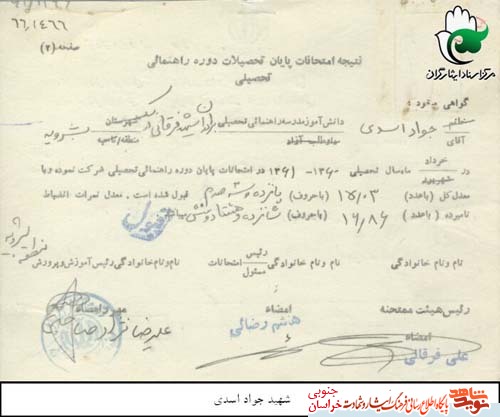 ۶۶/۱۴۶۶
نتیجه امتحانات پایان تحصیلات دوره راهنمائی
تحصیلی
صفحه (۲)
مرکز اسناد ایثارگران
گواهی میشود :
خانم
آقای جواد اسدی دانش آموز مدرسه راهنمائی تحصیلی
داوطلب آزاد
شهرستان
منطقه/ناحیه بشرویه
در خرداد
شهریور ماه سال تحصیلی ۱۳۶۰-۱۳۶۱ در امتحانات پایان دوره راهنمائی تحصیلی شرکت نموده و با
معدل کل (باعدد) ۱۵/۰۳ (باحروف) پانزده و سه صدم قبول شده است . معدل نمرات انضباط
نامبرده (باعدد) ۱۶/۸۶ (باحروف) شانزده و هشتاد و شش میباشد
قبول
نام و نام خانوادگی
نام و نام خانوادگی رئیس
مسئول امتحانات
نام و نام خانوادگی رئیس آموزش و پرورش
رئیس هیئت ممتحنه
امضاء
علی فرقانی
امضاء
هاشم رضائی
مهر و امضاء
علیرضا نژاد
شهید جواد اسدی
شاهد
نوید
پایگاه اطلاع رسانی فرهنگ ایثار و شهادت خراسان جنوبی